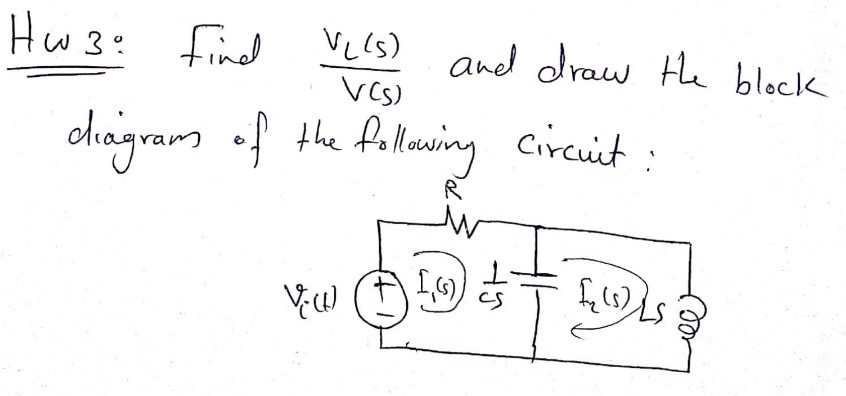 Hw 3: find VL(s) / V(s) and draw the block
diagram of the following circuit:
R
Vi(t) + - I1(s) 1/cs I2(s) LS